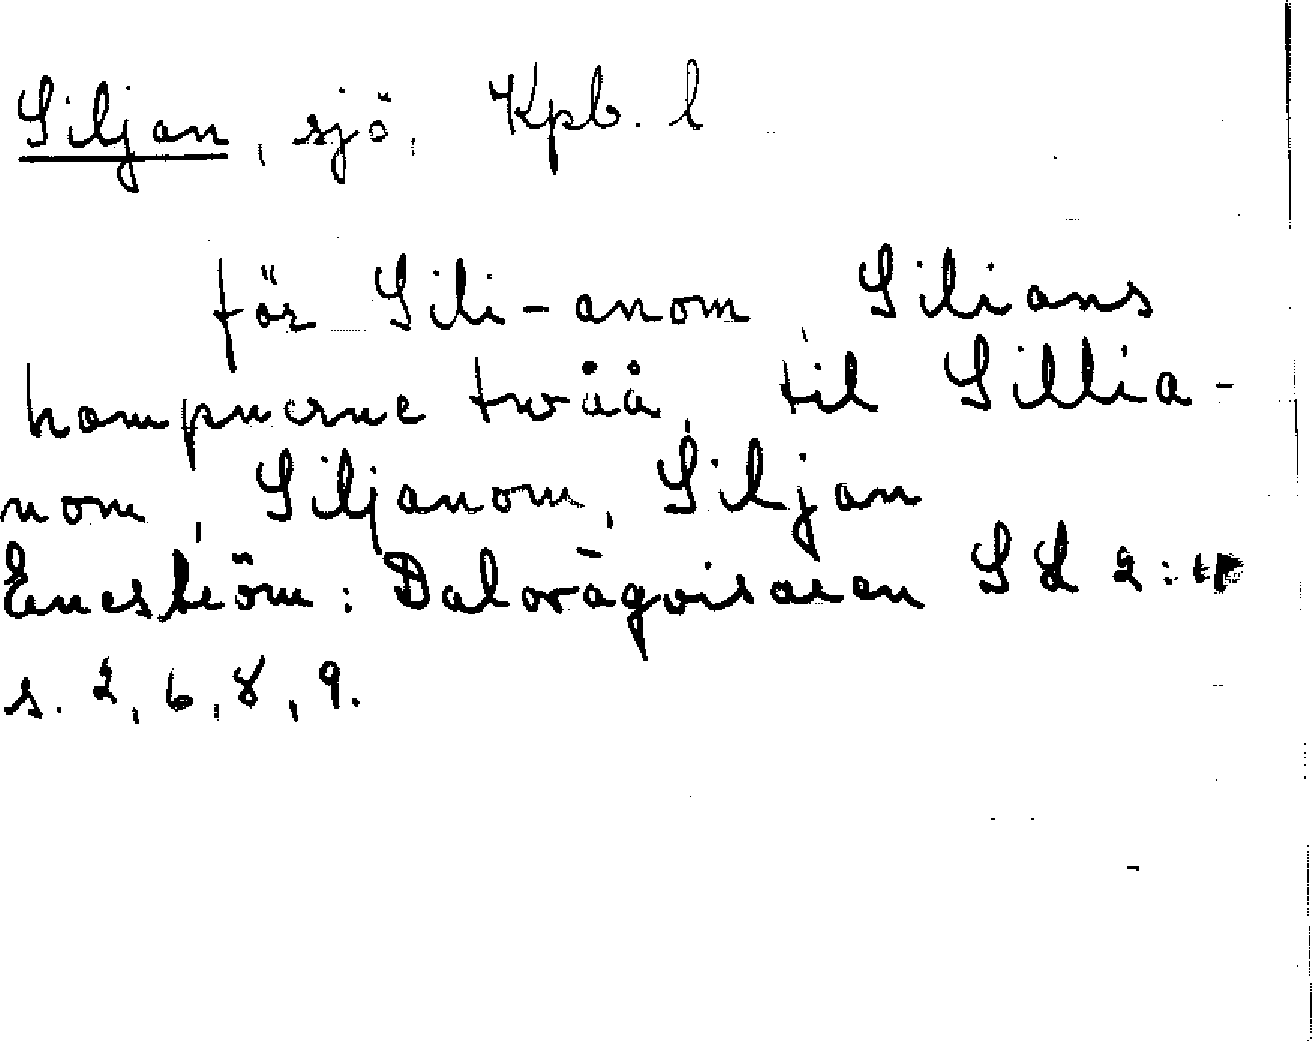 Siljan, sjö, Kpb. l
för Sili-anom, Silians
hampnerne twåå, til Sillia-
nom, Siljanom, Siljan
Eneström: Dalvägvisaren SL 2:
s. 2, 6, 8, 9.